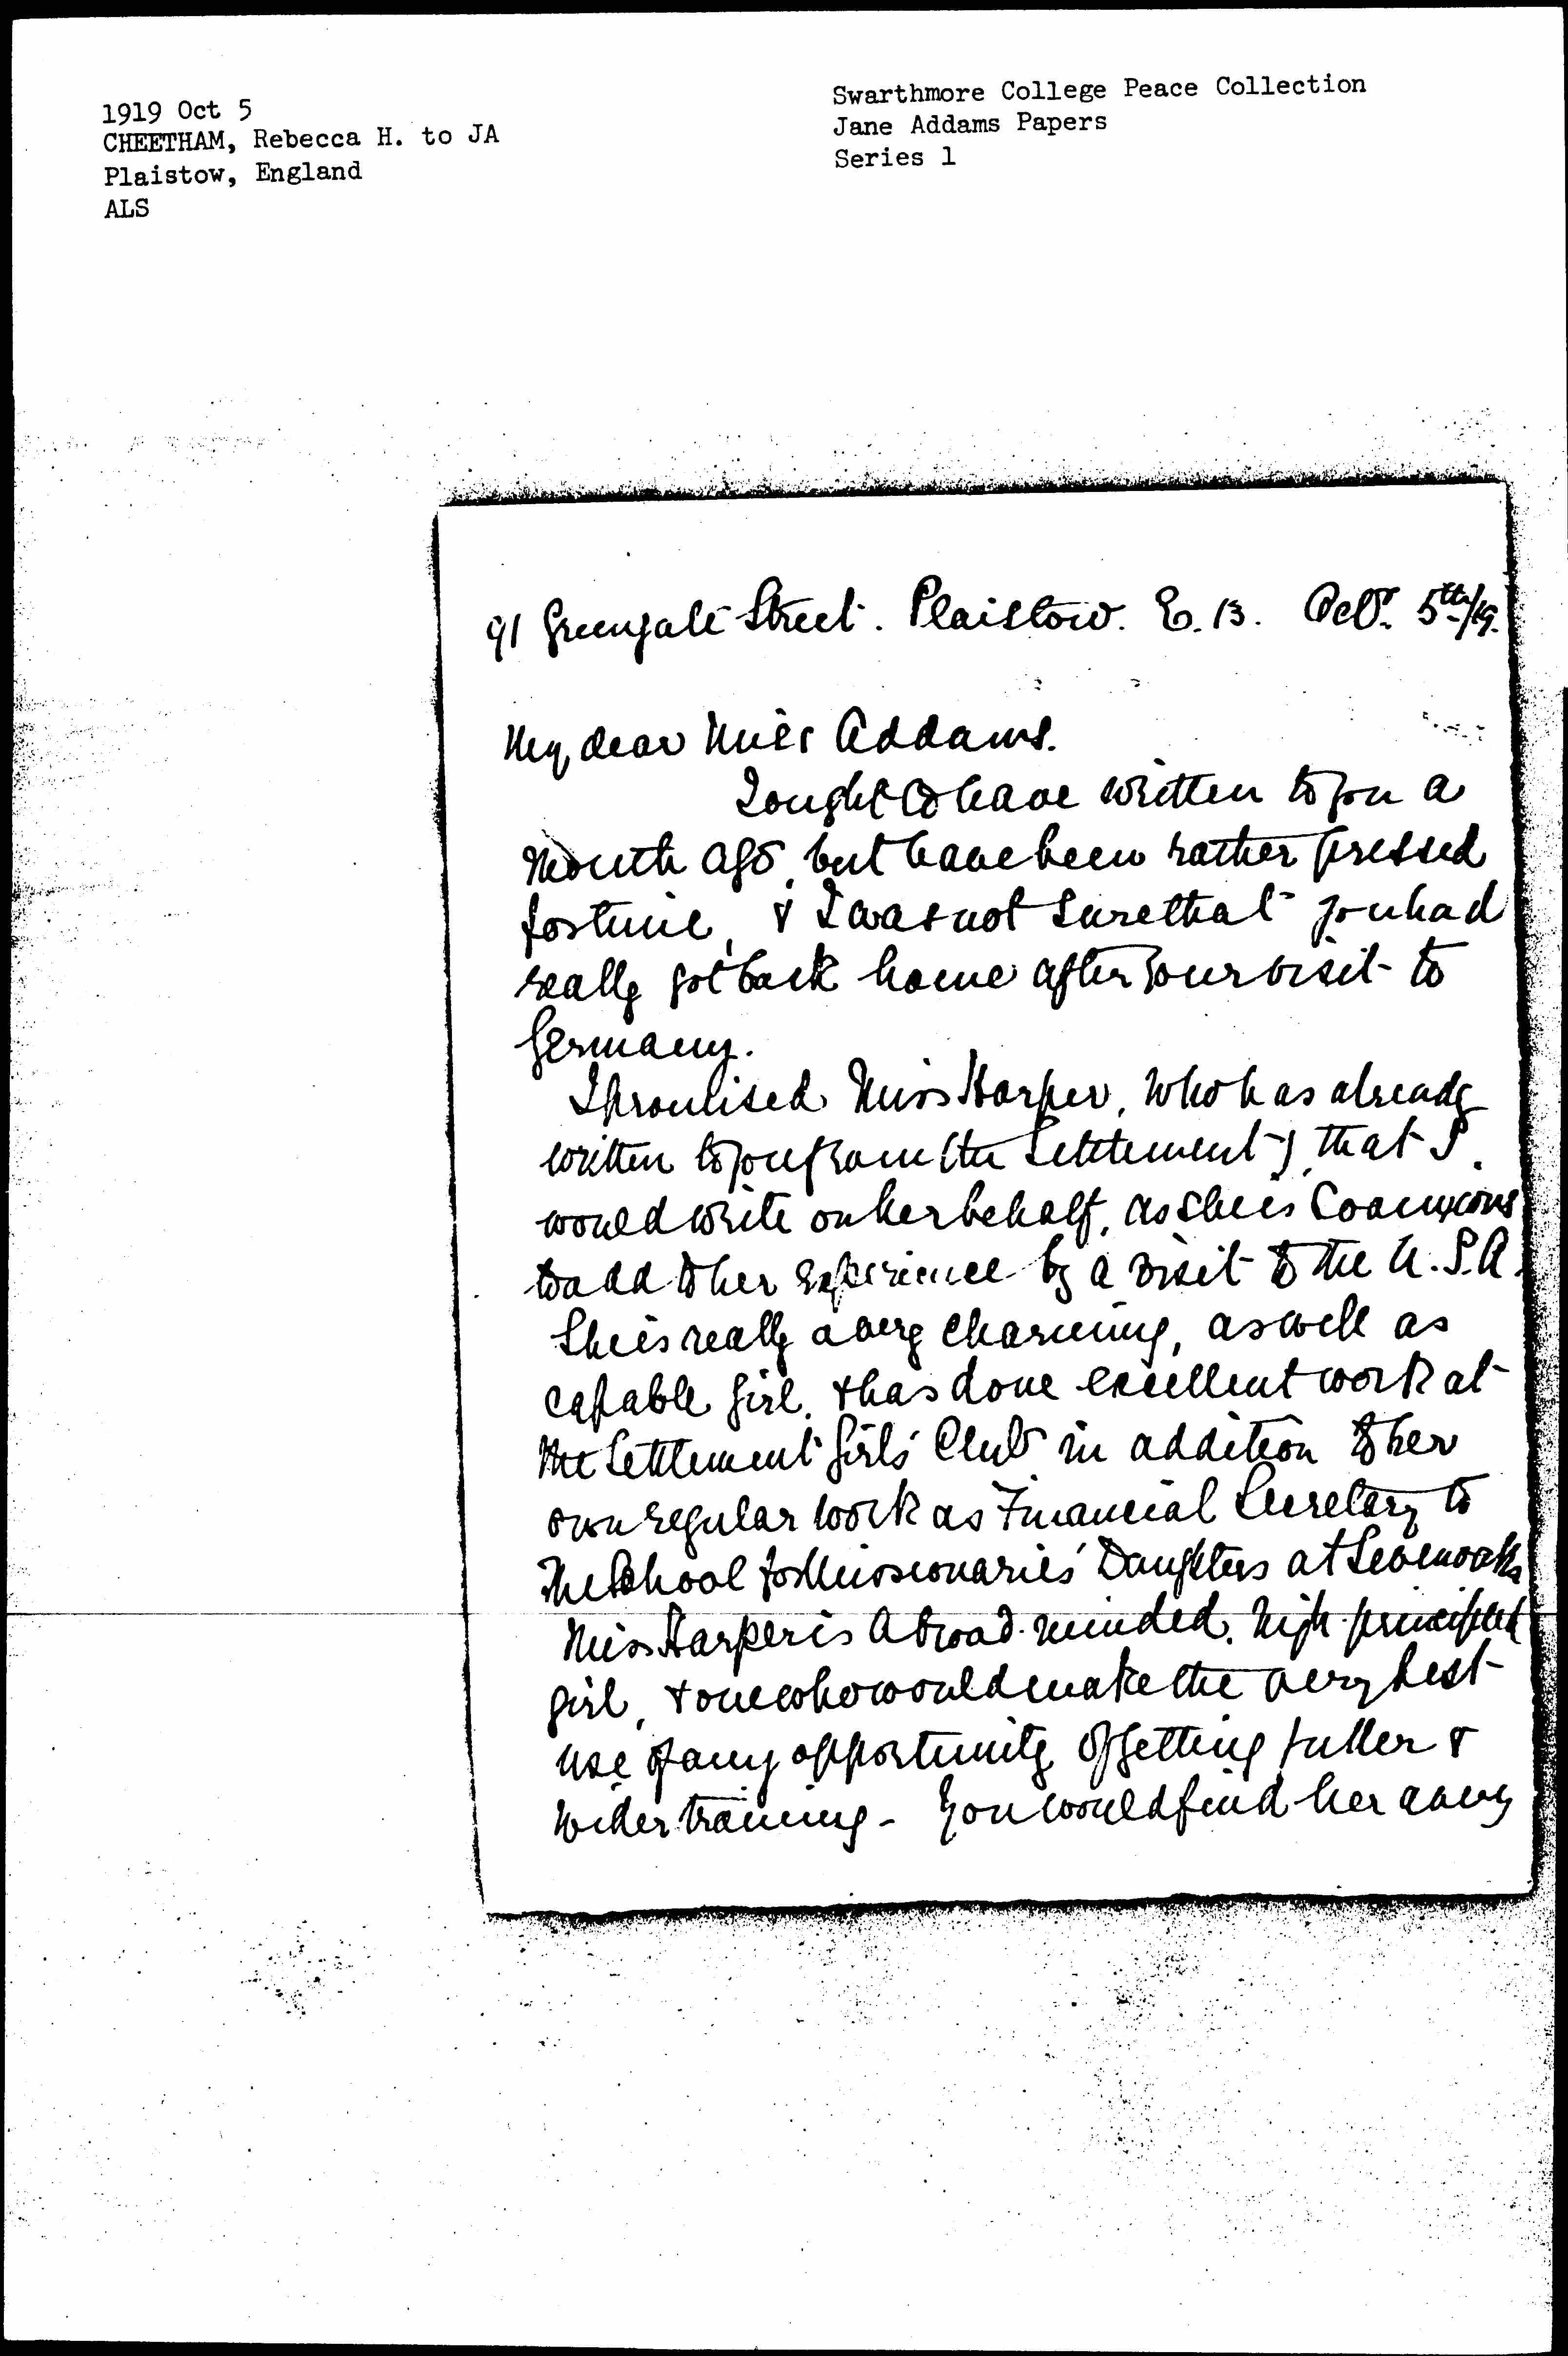 1919 Oct 5
CHEETHAM, Rebecca H. to JA
Plaistow, England
ALS
Swarthmore College Peace Collection
Jane Addams Papers
Series 1
91 Greengate Street. Plaistow. E. 13. Octr. 5th/19.
My dear Miss Addams.
I ought to have written to you a
month ago, but have been rather pressed
for time, & I was not sure that you had
really got back home after your visit to
Germany.
I promised Miss Harper, who has already
written to you from (the Settlement), that I
would write on her behalf, as she is so anxious
to add to her experience by a visit to the U.S.A.
She is really a very charming, as well as
capable girl, & has done excellent work at
the Settlement Girls' Club in addition to her
own regular work as Financial Secretary to
The School for Missionaries' Daughters at Sevenoaks
Miss Harper is a broad-minded, high principled
girl, & one who would make the very best
use of any opportunity of getting fuller &
wider training - You would find her a very